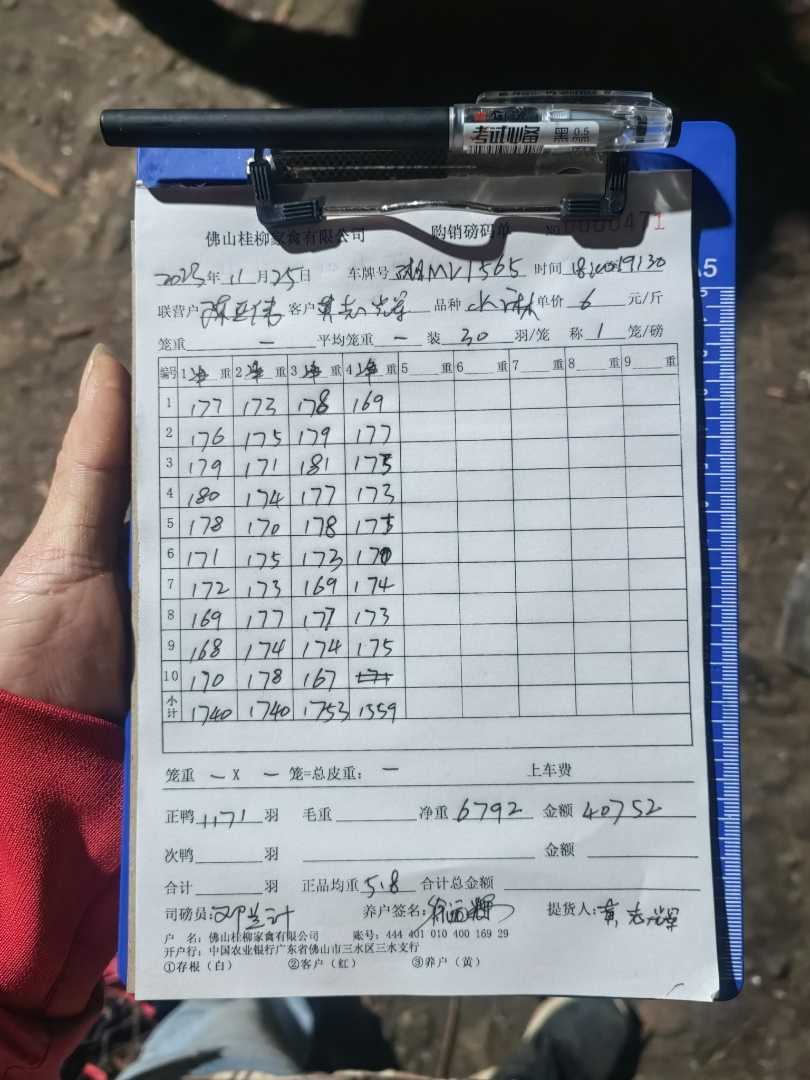 考试必备 黑 0.5
佛山桂柳家禽有限公司 购销磅码单 No 0000471
A5
2023年 11月25日 车牌号 MV1565 时间
联营户 客户 黄志 品种 单价 6 元/斤
笼重 — 平均笼重 — 装 30 羽/笼 称 1 笼/磅
编号 1净重 2净重 3净重 4净重 5 重 6 重 7 重 8 重 9 重
1 177 173 178 169
2 176 175 179 177
3 179 171 181 175
4 180 174 177 173
5 178 170 178 175
6 171 175 173 170
7 172 173 169 174
8 169 177 177 173
9 168 174 174 175
10 170 178 167
小计 1740 1740 1753 1559
笼重 — X — 笼=总皮重: — 上车费
正鸭 1171 羽 毛重 净重 6792 金额 40752
次鸭 羽 金额
合计 羽 正品均重 5.8 合计总金额
司磅员: 养户签名: 提货人: 黄志
户 名: 佛山桂柳家禽有限公司 账号: 444 401 010 400 169 29
开户行: 中国农业银行广东省佛山市三水区三水支行
①存根(白) ②客户(红) ③养户(黄)